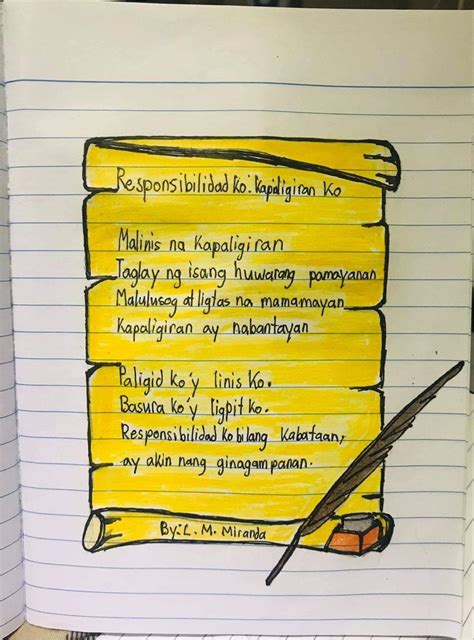 Responsibilidad Ko: Kapaligiran Ko
Malinis na Kapaligiran
Taglay ng isang huwarang pamayanan
Malulusog at ligtas na mamamayan
Kapaligiran ay nabantayan
Paligid ko'y linis ko.
Basura ko'y ligpit ko.
Responsibilidad ko bilang Kabataan,
ay akin nang ginagampanan.
By: L. M. Miranda